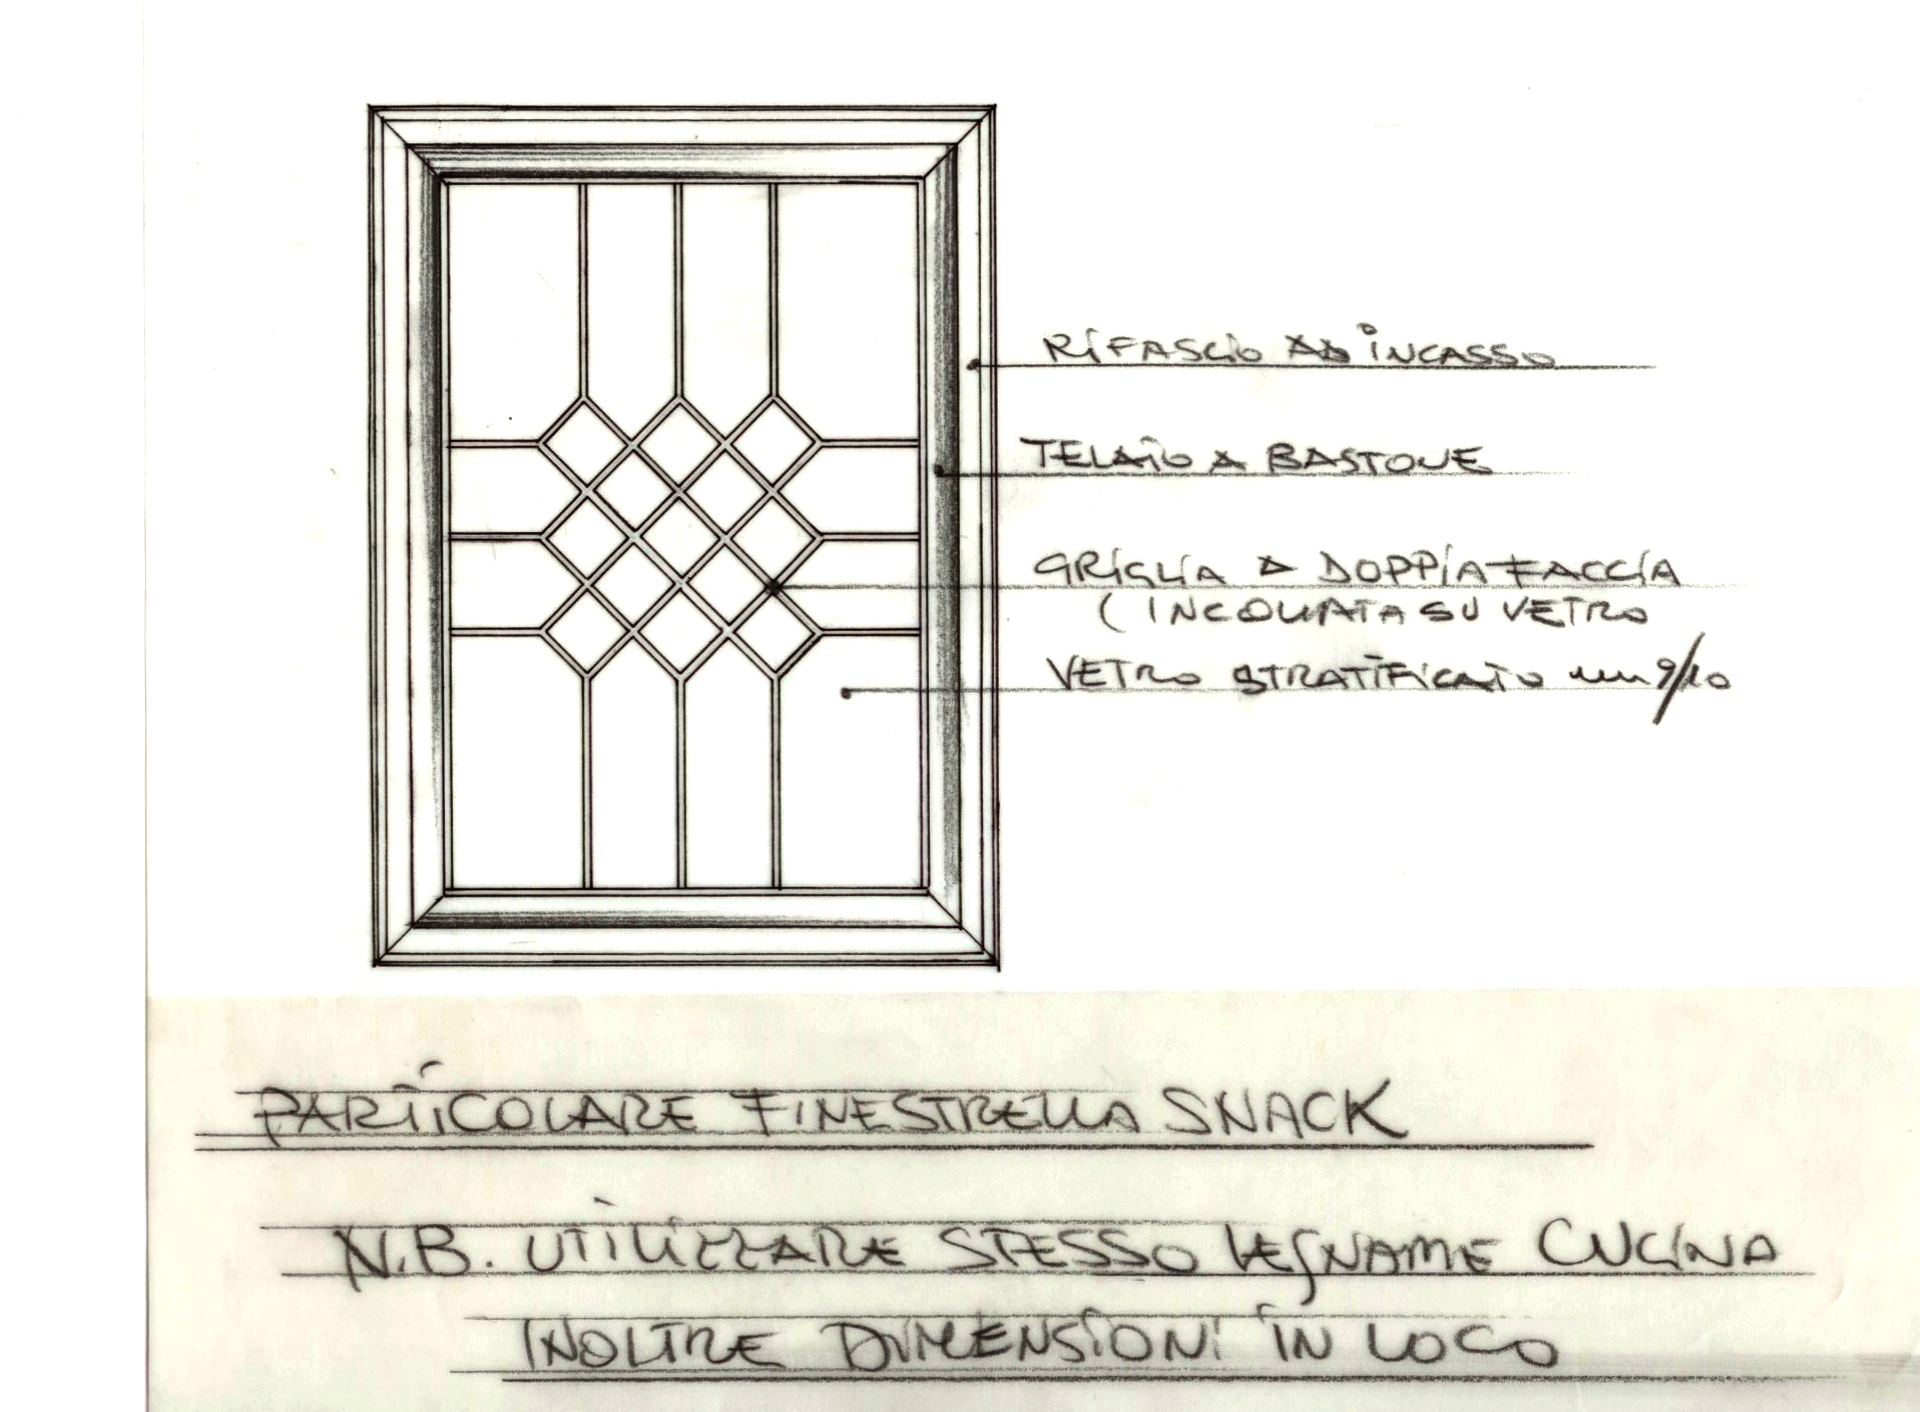 RIFASCIO AD INCASSO
TELAIO A BASTONE
GRIGLIA A DOPPIA FACCIA
( INCOLLATA SU VETRO
VETRO STRATIFICATO mm 9/10
PARTICOLARE FINESTRELLA SNACK
N.B. UTILIZZARE STESSO LEGNAME CUCINA
INOLTRE DIMENSIONI IN LOCO